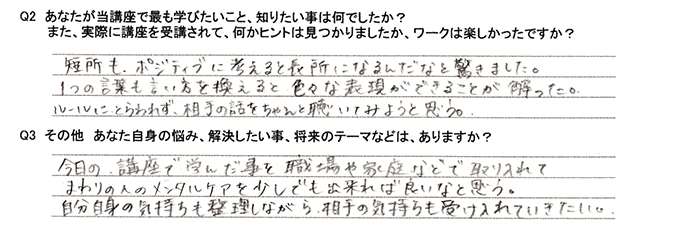 Q2 あなたが当講座で最も学びたいこと、知りたい事は何でしたか？
また、実際に講座を受講されて、何かヒントは見つかりましたか、ワークは楽しかったですか？
短所も、ポジティブに考えると長所になるんだなと驚きました。
1つの言葉も言い方を換えると色々な表現ができることが解った。
ルールにとらわれず、相手の話をちゃんと聴いてみようと思う。
Q3 その他 あなた自身の悩み、解決したい事、将来のテーマなどは、ありますか？
今日の、講座で学んだ事を職場や家庭などで取り入れて
まわりの人のメンタルケアを少しでも出来れば良いなと思う。
自分自身の気持ちも整理しながら、相手の気持ちも受け入れていきたい。